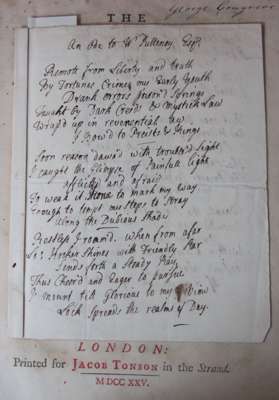 THE
George Congreve
An Ode to Wm Pulteney Esqr
Remote from Liberty and truth
By Fortunes Crime, my Early Youth
Drank errors poison'd Springs
Taught by Dark Creeds & Mystick Law
Wrap'd up in reverential Aw
I Bow'd to Preists & Kings
Soon reason dawn'd with troubl'd Sight
I caught the Glimpse of Painfull light
afflicted and afraid
So weak it Shone to mark my way
Enough to tempt my steps to Stray
Along the Dubious Shade
Restless I roam'd, when from afar
Lo! Hooker Shines with Friendly Star
Sends forth a Steady Ray
Thus Cheer'd and Eager to pursue
I mount till Glorious to my View
Lock Spreads the realms of Day.
LONDON:
Printed for JACOB TONSON in the Strand.
MDCCXXV.